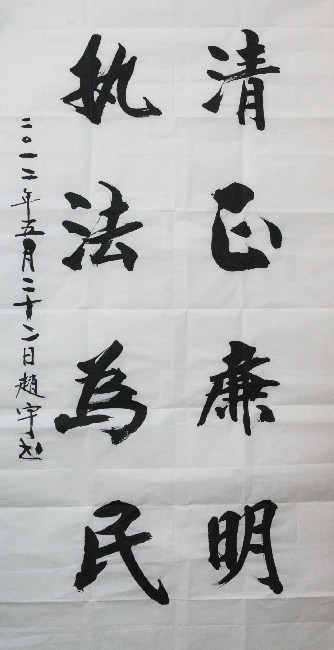 清正廉明
执法為民
二〇一二年五月二十二日趙宇书